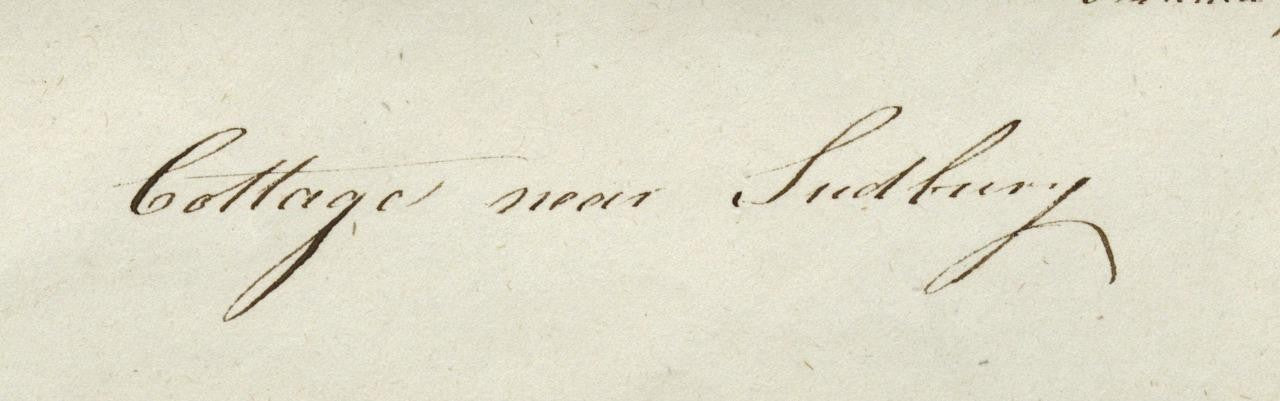 Cottage near Sudbury